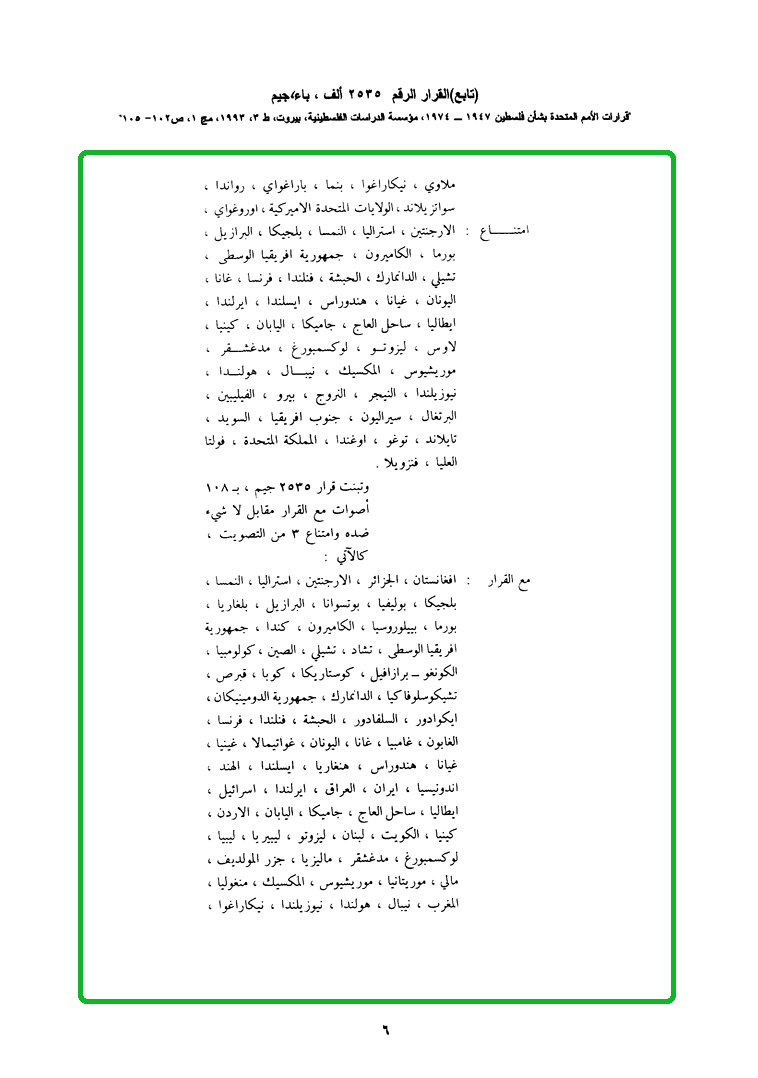 (تابع)القرار الرقم ٢٥٣٥ ألف ، باء،جيم
"قرارات الأمم المتحدة بشأن فلسطين ١٩٤٧ ــ ١٩٧٤، مؤسسة الدراسات الفلسطينية، بيروت، ط ٣، ١٩٩٣، مج ١، ص١٠٢- ١٠٥"
ملاوي ، نيكاراغوا ، بنما ، باراغواي ، رواندا ،
سواتزيلاند ، الولايات المتحدة الاميركية ، اوروغواي ،
امتنـــــاع : الارجنتين ، استراليا ، النمسا ، بلجيكا ، البرازيل ،
بورما ، الكاميرون ، جمهورية افريقيا الوسطى ،
تشيلي ، الدانمارك ، الحبشة ، فنلندا ، فرنسا ، غانا ،
اليونان ، غيانا ، هندوراس ، ايسلندا ، ايرلندا ،
ايطاليا ، ساحل العاج ، جاميكا ، اليابان ، كينيا ،
لاوس ، ليزوتـو ، لوكسمبورغ ، مدغشـقر ،
موريشيوس ، المكسيك ، نيبـال ، هولنـدا ،
نيوزيلندا ، النيجر ، النروج ، بيرو ، الفيليبين ،
البرتغال ، سيراليون ، جنوب افريقيا ، السويد ،
تايلاند ، توغو ، اوغندا ، المملكة المتحدة ، فولتا
العليا ، فنزويلا .
وتبنت قرار ٢٥٣٥ جيم ، بـ ١٠٨
أصوات مع القرار مقابل لا شيء
ضده وامتناع ٣ من التصويت ،
كالآتي :
مع القرار : افغانستان ، الجزائر ، الارجنتين ، استراليا ، النمسا ،
بلجيكا ، بوليفيا ، بوتسوانا ، البرازيل ، بلغاريا ،
بورما ، بييلوروسيا ، الكاميرون ، كندا ، جمهورية
افريقيا الوسطى ، تشاد ، تشيلي ، الصين ، كولومبيا ،
الكونغو ــ برازافيل ، كوستاريكا ، كوبا ، قبرص ،
تشيكوسلوفاكيا ، الدانمارك ، جمهورية الدومينيكان ،
ايكوادور ، السلفادور ، الحبشة ، فنلندا ، فرنسا ،
الغابون ، غامبيا ، غانا ، اليونان ، غواتيمالا ، غينيا ،
غيانا ، هندوراس ، هنغاريا ، ايسلندا ، الهند ،
اندونيسيا ، ايران ، العراق ، ايرلندا ، اسرائيل ،
ايطاليا ، ساحل العاج ، جاميكا ، اليابان ، الاردن ،
كينيا ، الكويت ، لبنان ، ليزوتو ، ليبيريا ، ليبيا ،
لوكسمبورغ ، مدغشقر ، ماليزيا ، جزر المولديف ،
مالي ، موريتانيا ، موريشيوس ، المكسيك ، منغوليا ،
المغرب ، نيبال ، هولندا ، نيوزيلندا ، نيكاراغوا ،
٦